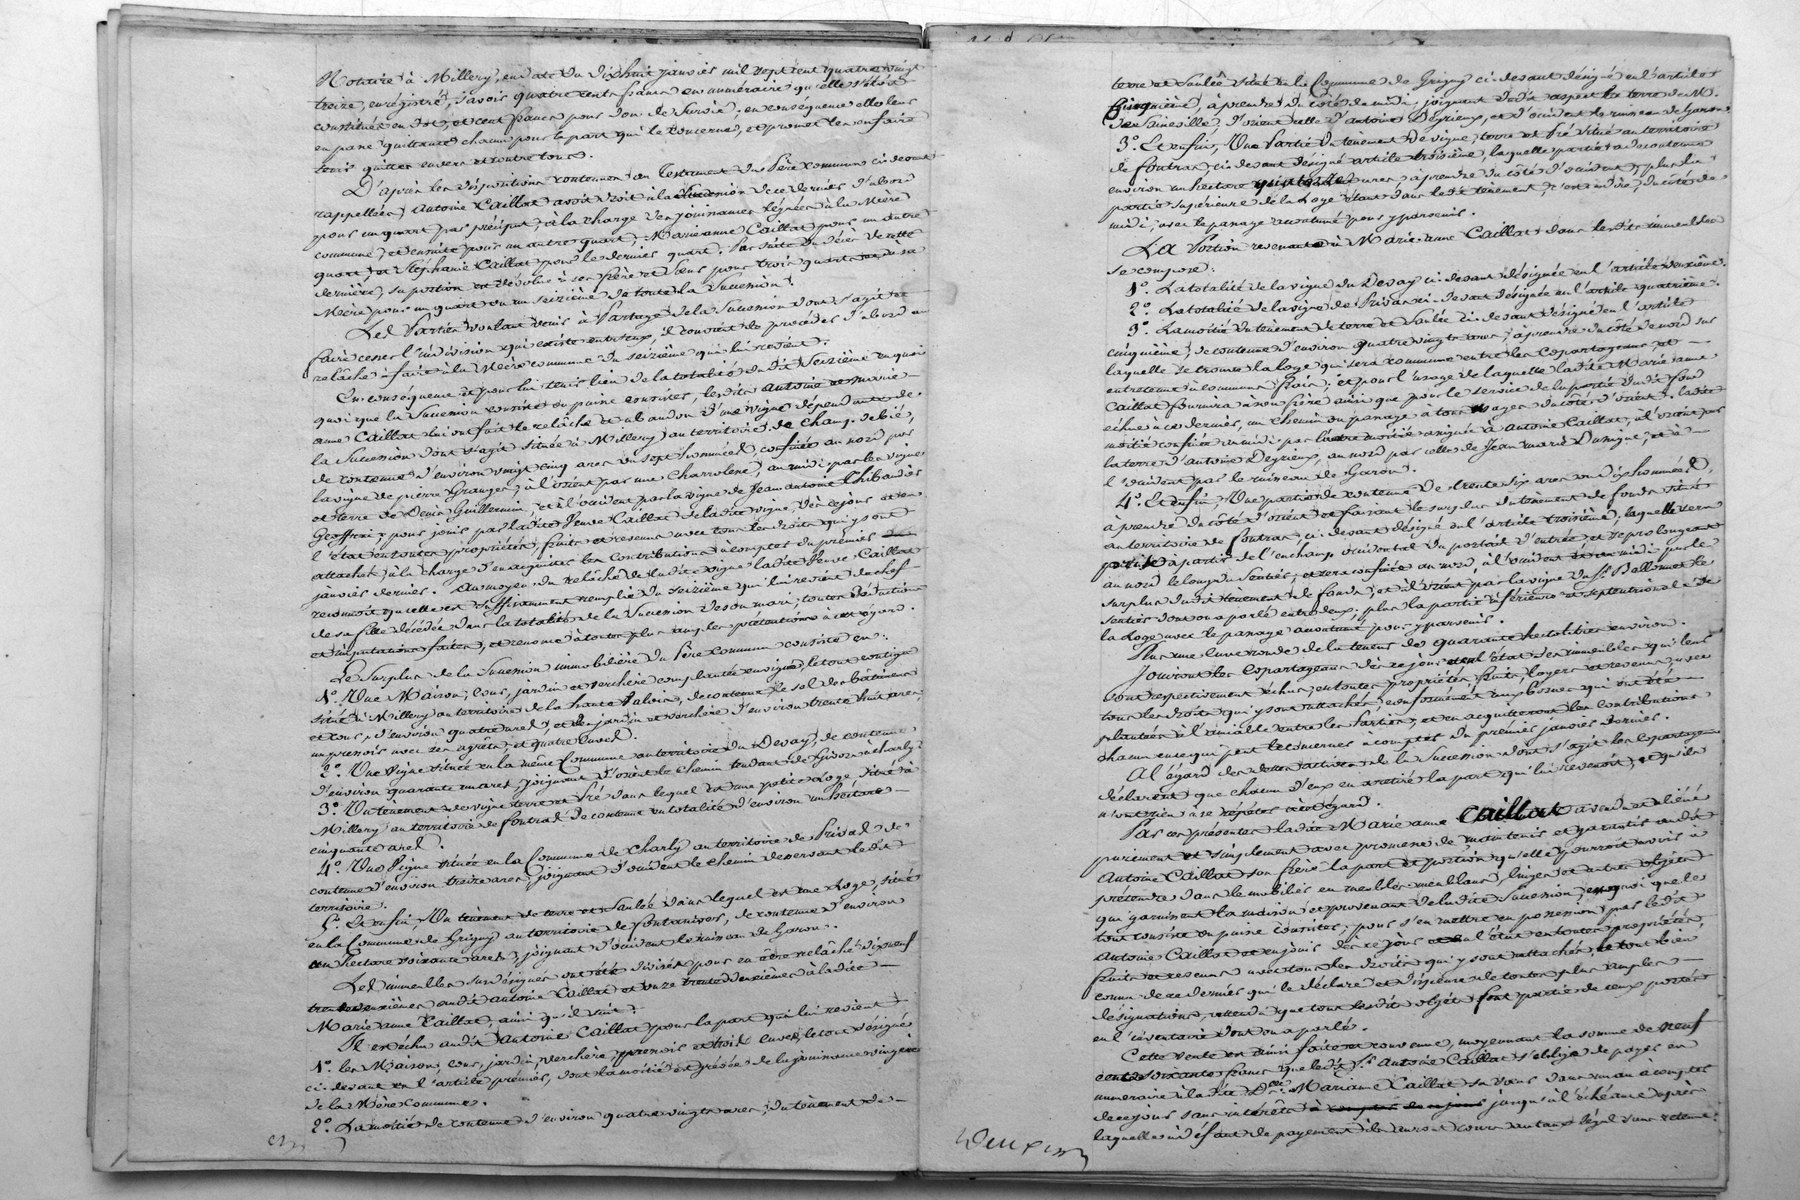 Notaire à Millery, en date du dixhuit janvier mil sept cent quatre vingt
treize, enregistré, savoir quatre cents francs en numéraire qu'elle s'étoit
constitués en dot, et cent francs pour don de survie; en conséquence elle leur
en passe quittance chacun pour la part qui le concerne, et promet les en faire
tenir quittes envers et contre tous.
D'après les dispositions contenues au Testament du Père commun ci devant
rappellées, Antoine Caillat avoit droit à la succession de ce dernier d'abord
pour un quart par préciput, à la charge des jouissances léguées à la Mère
commune, et ensuite pour un autre quart, Marie anne Caillat pour un autre
quart, et Stéphanie Caillat pour le dernier quart. Par suite du décès de cette
dernière, sa portion est dévolue à ses frère et sœur pour trois quarts et à sa
Mère pour un quart ou un seizième de toute la succession.
Les Parties voulant venir à Partage de la succession dont s'agit et
faire cesser l'indivision qui existe entr'eux, il convient de procéder d'abord au
relâche à faire à la Mère commune du seizième qui lui revient.
En conséquence et pour lui tenir lieu de la totalité du dit seizième en quoi
quoi que la succession consiste ou puisse consister, lesdits Antoine et marie
anne Caillat lui ont fait le relâche et abandon d'une vigne dépendante de
la succession dont s'agit située à Millery au territoire de Champ de bié,
de contenue d'environ vingt cinq ares ou sept hommées, confinée au nord par
la vigne de pierre Granger, à l'orient par une Charrolerie, au midi par les vigne
et terre de Denis Guillermin, et à l'occident par la vigne de Jean antoine Thibaudier
Geoffrai; pour jouir par ladite Veuve Caillat de ladite vigne, dès ce jour et en
l'état en toutes propriétés, fruits et revenus avec tous les droits qui y sont
attachés, à la charge d'en acquitter les contributions à compter du premier
janvier dernier. Au moyen du relâche de ladite vigne ladite Veuve Caillat
reconnoit qu'elle est suffisamment remplie du seizième qui lui revient du chef
de sa fille décédée dans la totalité de la succession de son mari, toutes déductions
et imputations faites, et renonce à toutes plus amples prétentions à cet égard.
Le surplus de la succession immobilière du Père commun consiste en:
1º. Une Maison, cour, jardin et verchère complantée en vigne, le tout contigu
situé à Millery au territoire de la haute Valois, de contenue le sol des bâtiments
et cour, d'environ quatre ares, et les jardin et verchère d'environ trente huit ares,
un pressoir avec ses agrêts, et quatre cuves.
2º. Une Vigne située en la même Commune au territoire du Devay, de contenue
d'environ quarante un ares, joignant d'orient le chemin tendant de Givors à Charly.
3º. Un tènement de vigne terre et Pré dans lequel est une petite Loge, situé à
Millery au territoire de fontrat, de contenue en totalité d'environ un hectare
cinquante ares.
4º. Une Vigne située en la Commune de Charly au territoire de Privas, de
contenue d'environ treize ares, joignant d'occident le chemin desservant le dit
territoire.
5º. Et enfin, Un tènement de terre et Saulée dans lequel est une Loge, situé
en la Commune de Grigny au territoire de fontanières, de contenue d'environ
un hectare soixante ares, joignant d'occident le ruisseau de Garon.
Les immeubles sus désignés ont été divisés pour en être relâché dix neuf
trente deuxièmes audit Antoine Caillat et onze trente deuxièmes à ladite
Marie anne Caillat, ainsi qu'il suit:
Il est échu audit Antoine Caillat pour la part qui lui revient
1º. les Maison, cour, jardin, verchère, pressoir et trois cuves, le tout désigné
ci-devant en l'article premier, dont la moitié est grévée de la jouissance viagère
de la Mère Commune.
2º. La moitié de contenue d'environ quatre vingts ares, du tènement de
terre et Saulée situé en la Commune de Grigny ci-devant désigné en l'article
cinquième, à prendre du côté de midi, joignant dudit aspect la terre de M.
de Saineville, d'orient celle d'antoine Deyrieux, et d'occident le ruisseau de Garon.
3º. Et enfin, Une Partie du tènement de vigne, terre et Pré situé au territoire
de fontrat, ci-devant désigné article troisième, laquelle partie a de contenue
environ un hectare quatorze ares à prendre du côté d'occident, plus la
partie supérieure de la Loge étant dans ledit tènement, c'est à dire, du côté de
midi, avec le passage accoutumé pour y parvenir.
La Portion revenante à Marie anne Caillat dans lesdits immeubles
se compose:
1º. La totalité de la vigne du Devay ci-devant désignée en l'article deuxième.
2º. La totalité de la vigne de Privas ci-devant désignée en l'article quatrième.
3º. La moitié du tènement de terre et Saulée ci-devant désigné en l'article
cinquième, de contenue d'environ quatre vingts ares, à prendre du côté de nord sur
laquelle se trouve la loge qui sera commune entre les Copartageans, et
entretenue à communs frais; et pour l'usage de laquelle ladite Marie anne
Caillat fournira à son frère ainsi que pour le service de la partie dudit fond
échue à ce dernier, un chemin ou passage à tous usages du côté d'orient. Ladite
moitié confinée au midi par l'autre moitié assignée à Antoine Caillat, à l'orient par
la terre d'antoine Deyrieux, au nord par celle de Jean marie Durigne, et à
l'occident par le ruisseau de Garon.
4º. Et enfin, Une partie de contenue de trente six ares ou dix hommées,
à prendre du côté d'orient et faisant le surplus du tènement de fonds situé
au territoire de fontrat, ci-devant désigné en l'article troisième, laquelle sera
prise à partir de l'enchamp occidental du portail d'entrée et se prolongeant
au nord le long du sentier, et sera confinée au nord, à l'occident et au midi par le
surplus dudit tènement de fonds, et à l'orient par la vigne du Sr. Bellonnet le
sentier dont on a parlé entre deux; plus la partie inférieure et septentrionale de
la Loge avec le passage accoutumé pour y parvenir.
Plus une cuve ronde de la teneur de quarante hectolitres environ.
Jouiront les Copartageans dès ce jour et en l'état des immeubles qui leur
sont respectivement échus, en toutes propriétés, fruits, loyers et revenus, avec
tous les droits qui y sont attachés, conformément aux bornes qui ont été
plantées à l'amiable entre les Parties, et en acquitteront les contributions
chacun en ce qui peut le concerner à compter du premier janvier dernier.
A l'égard des dettes actives de la succession dont s'agit les Copartageans
déclarent que chacun d'eux en a retiré la part qui lui revenoit, et qu'ils
n'ont rien à se répéter à cet égard.
Par ces présentes ladite Marie anne Caillat a vendu et aliéné
purement et simplement avec promesse de maintenir et garantir audit
Antoine Caillat son frère la part et portion qu'elle y pourroit avoir à
prétendre dans le mobilier en meubles meublans, linges et autres objets
qui garnissent la maison et provenant de ladite succession, en quoi que le
tout consiste ou puisse consister; pour s'en mettre en possession par le dit
Antoine Caillat et en jouir dès ce jour et en l'état en toutes propriétés,
fruits et revenus avec tous les droits qui y sont attachés, le tout bien
connu de ce dernier qui le déclare et dispense de toutes plus amples
désignations, attendu que tous lesdits objets font partie de ceux portés
en l'inventaire dont on a parlé.
Cette vente est ainsi faite et convenue, moyennant la somme de neuf
cents soixante francs que ledit Sr. Antoine Caillat s'oblige de payer en
numéraire à ladite Dlle. Marianne Caillat sa sœur dans un an à compter
de ce jour sans intérêts à compter de ce jour jusqu'à l'échéance après
laquelle à défaut de payement ils auront cours au taux légal sans retenue.